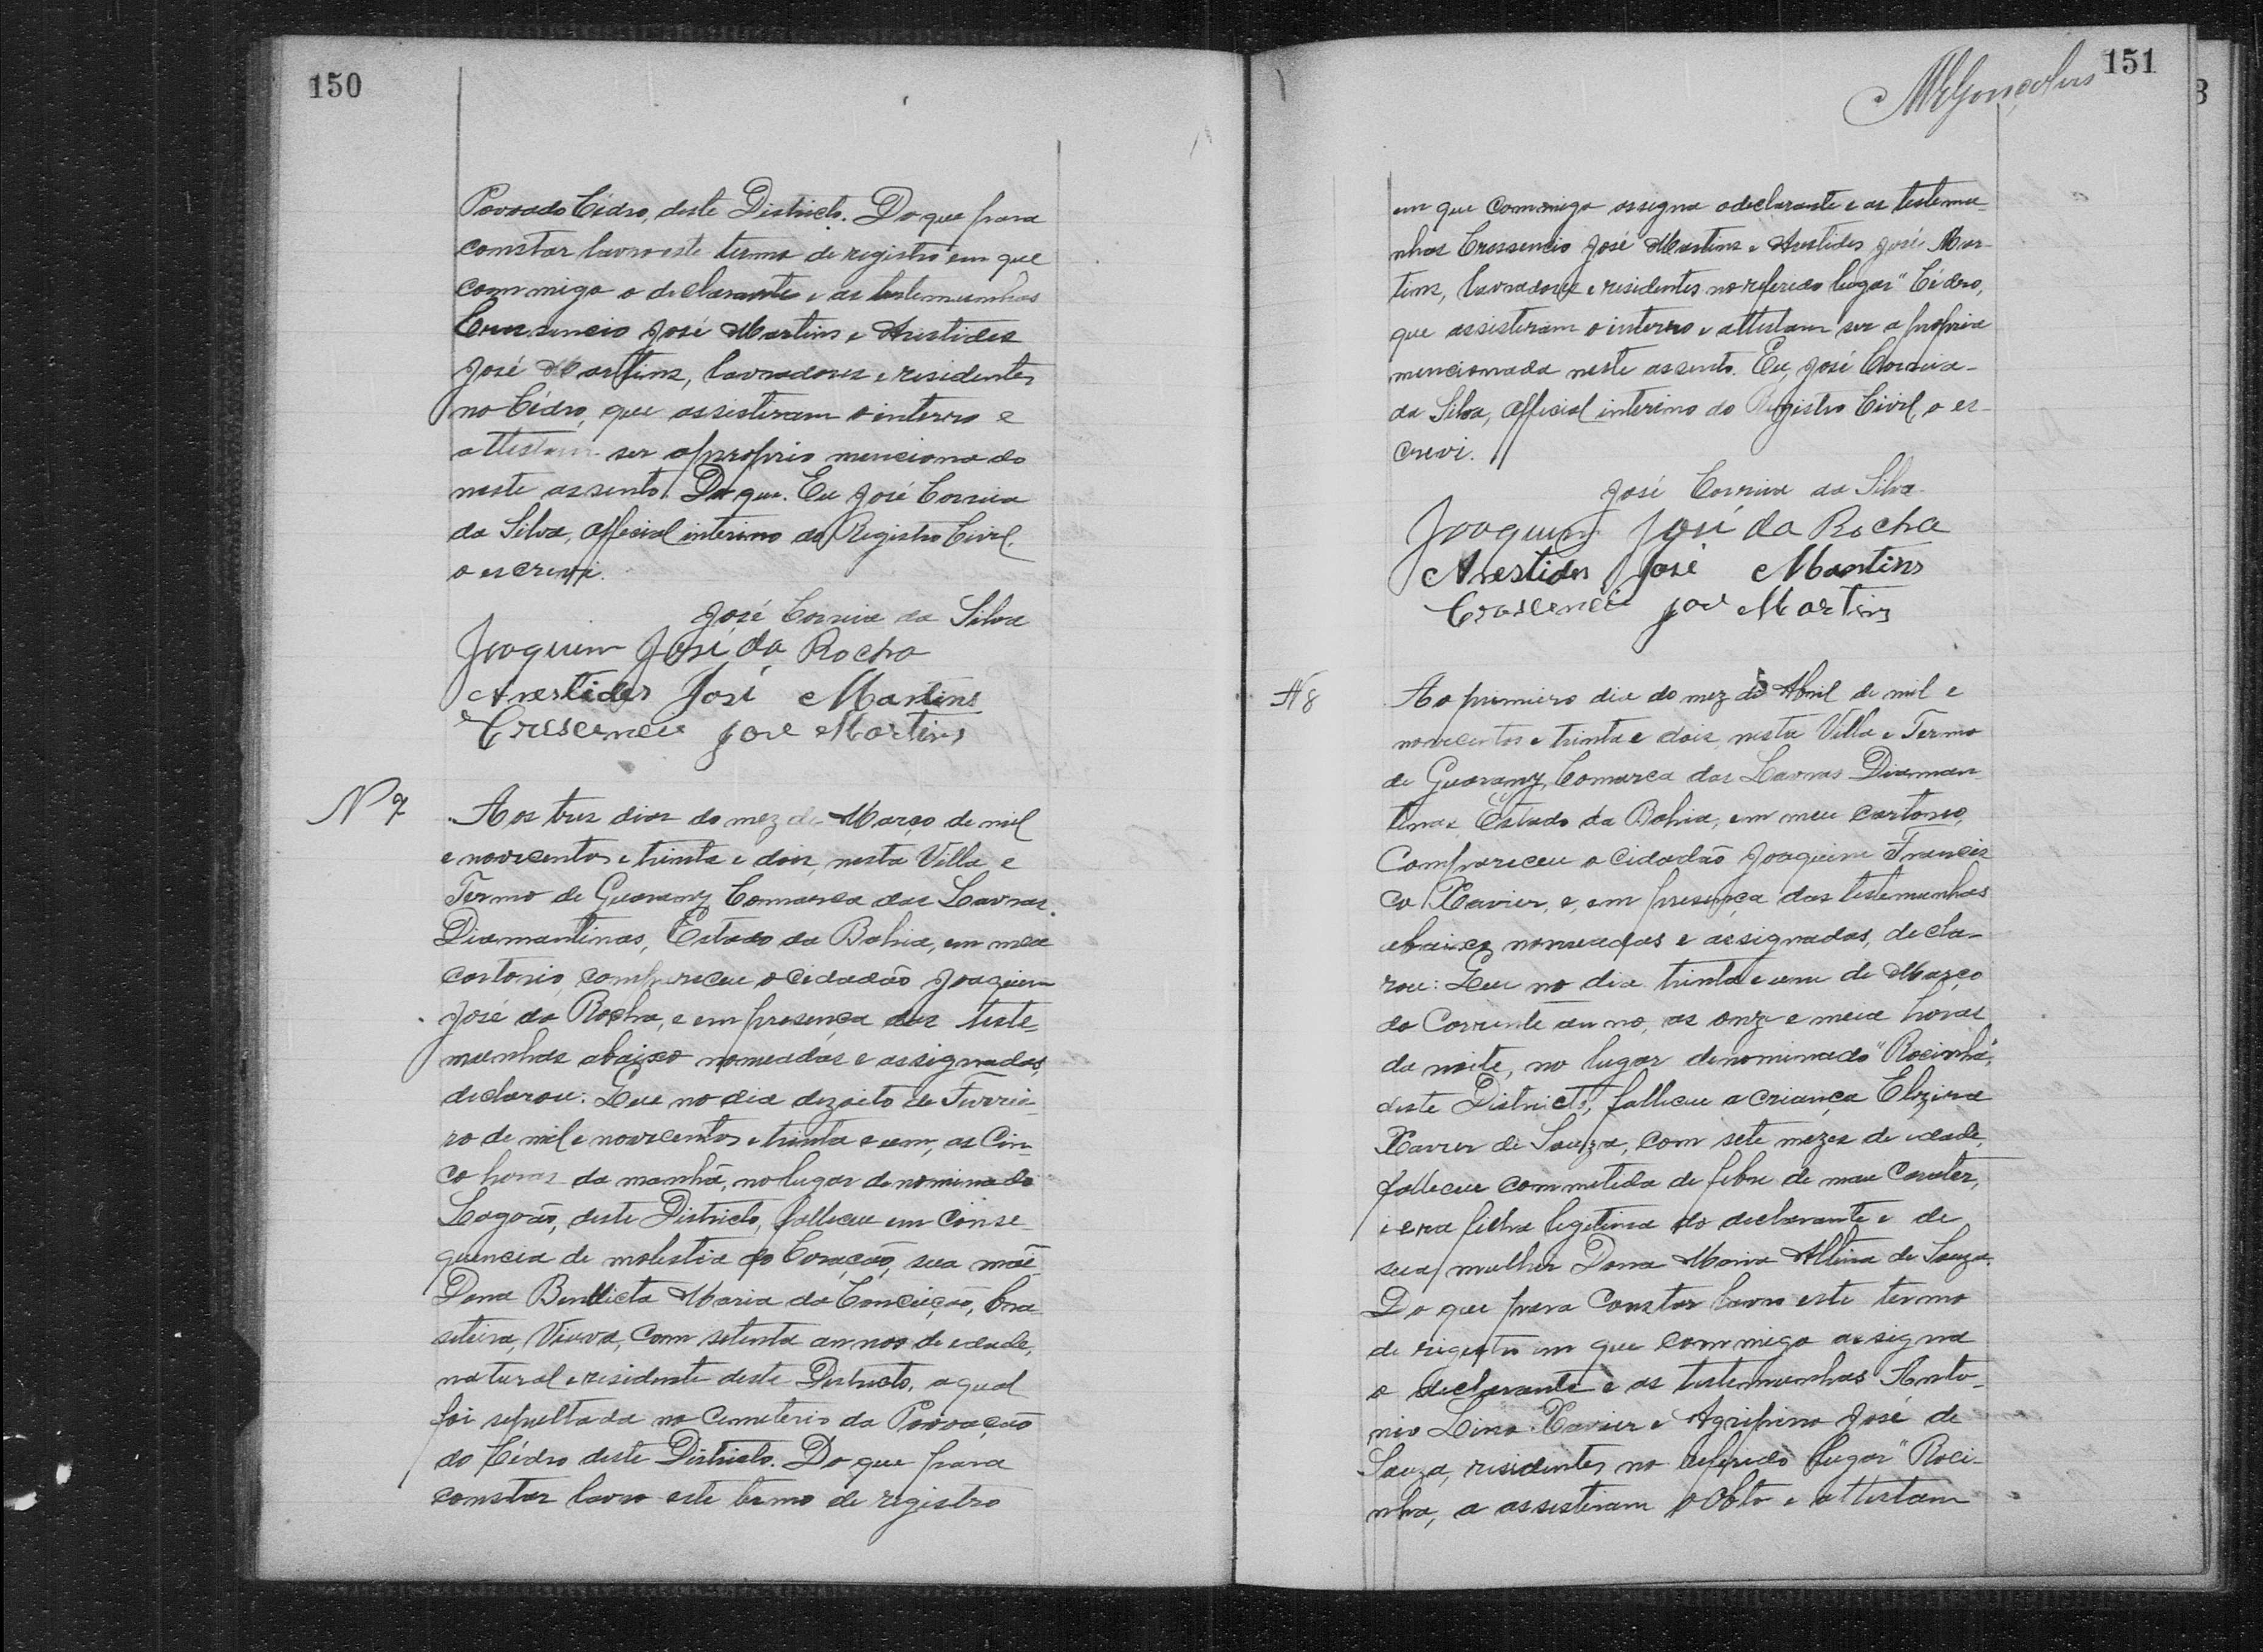 150
Povoado Cédro, deste Districto. Do que para
constar lavro este termo de registro em que
commigo o declarante e as testemunhas
Crescencio José Martins e Aristides
José Martins, lavradores e residentes
no Cédro, que assistiram o interro e
attestam ser o proprio mencionado
neste assento. Do que. Eu José Correia
da Silva, official interino do Registro Civil,
o escrevi.
José Correia da Silva
Joaquim José da Rocha
Arestides José Martins
Crescencio José Martins
Nº 7
Aos tres dias do mez de Março de mil
e novecentos e trinta e dois, nesta Villa e
Termo de Guarany Comarca das Lavras
Diamantinas, Estado da Bahia, em meu
cartorio, compareceu o cidadão Joaquim
José da Rocha, e em presença das teste-
munhas abaixo nomeadas e assignadas,
declarou: Que no dia dezoito de Feverei-
ro de mil e novecentos e trinta e um, as Cin-
co horas da manhã, no lugar denominado
Lagoão, deste Districto, falleceu em conse-
quencia de molestia do Coração, sua mãe
Dona Benedicta Maria da Conceição, bra-
sileira, Viuva, com setenta annos de edade,
natural e residente deste Districto, a qual
foi sepultada no Cemeterio da Povoação
do Cédro deste Districto. Do que para
constar lavro este termo de registro
151
MGonçalves
em que commigo assigna o declarante e as testemu-
nhas Cressencio José Martins e Arestides José Mar-
tins, lavradores e residentes no referido lugar "Cédro,
que assisteram o interro e attestam ser a propria
mencionada neste assento. Eu, José Correia-
da Silva, official interino do Registro Civil, o es-
crevi.
José Correia da Silva
Joaquim José da Rocha
Arestides José Martins
Crescencio José Martins
N 8
Ao primeiro dia do mez de Abril de mil e
novecentos e trinta e dois, nesta Villa e Termo
de Guarany, Comarca das Lavras Diaman-
tinas Estado da Bahia, em meu cartorio,
Compareceu o cidadão Joaquim Francis
co Xavier, e, em presença das testemunhas
abaixo nomeadas e assignadas, decla-
rou: Que no dia trinta e um de Março
do Corrente anno, as onze e meia horas
da noite, no lugar denominado "Rocinha",
deste Districto, falleceu a criança Elozina
Xavier de Souza, com sete mezes de edade,
falleceu commetida de febre de mau carater,
e era filha legitima do declarante e de
sua mulher Dona Maria Altina de Souza.
Do que para Constar lavro este termo
de registro em que commigo assigna
o declarante e as testemunhas Anto-
nio Lino Xavier e Agripino José de
Souza, residentes no referido lugar "Roci-
nha, a assisteram o obto e attestam